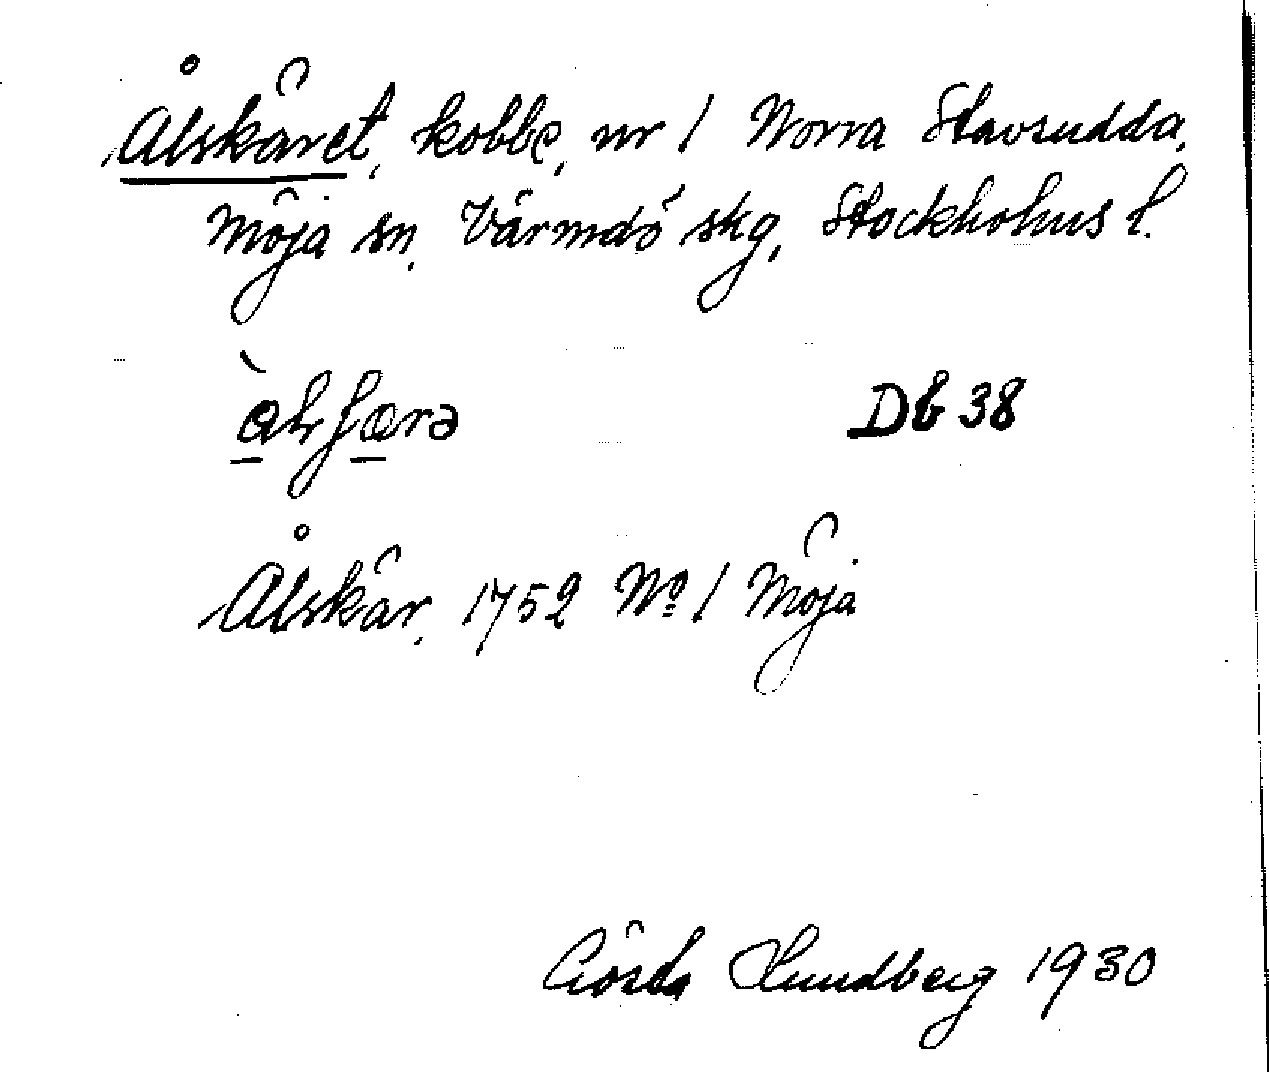 Ålskäret, kobbe, nr 1 Norra Stavsudda,
Möja sn, Värmdö skg, Stockholms l.
Db 38
Ålskär, 1752 No 1 Möja
Gösta Lundberg 1930